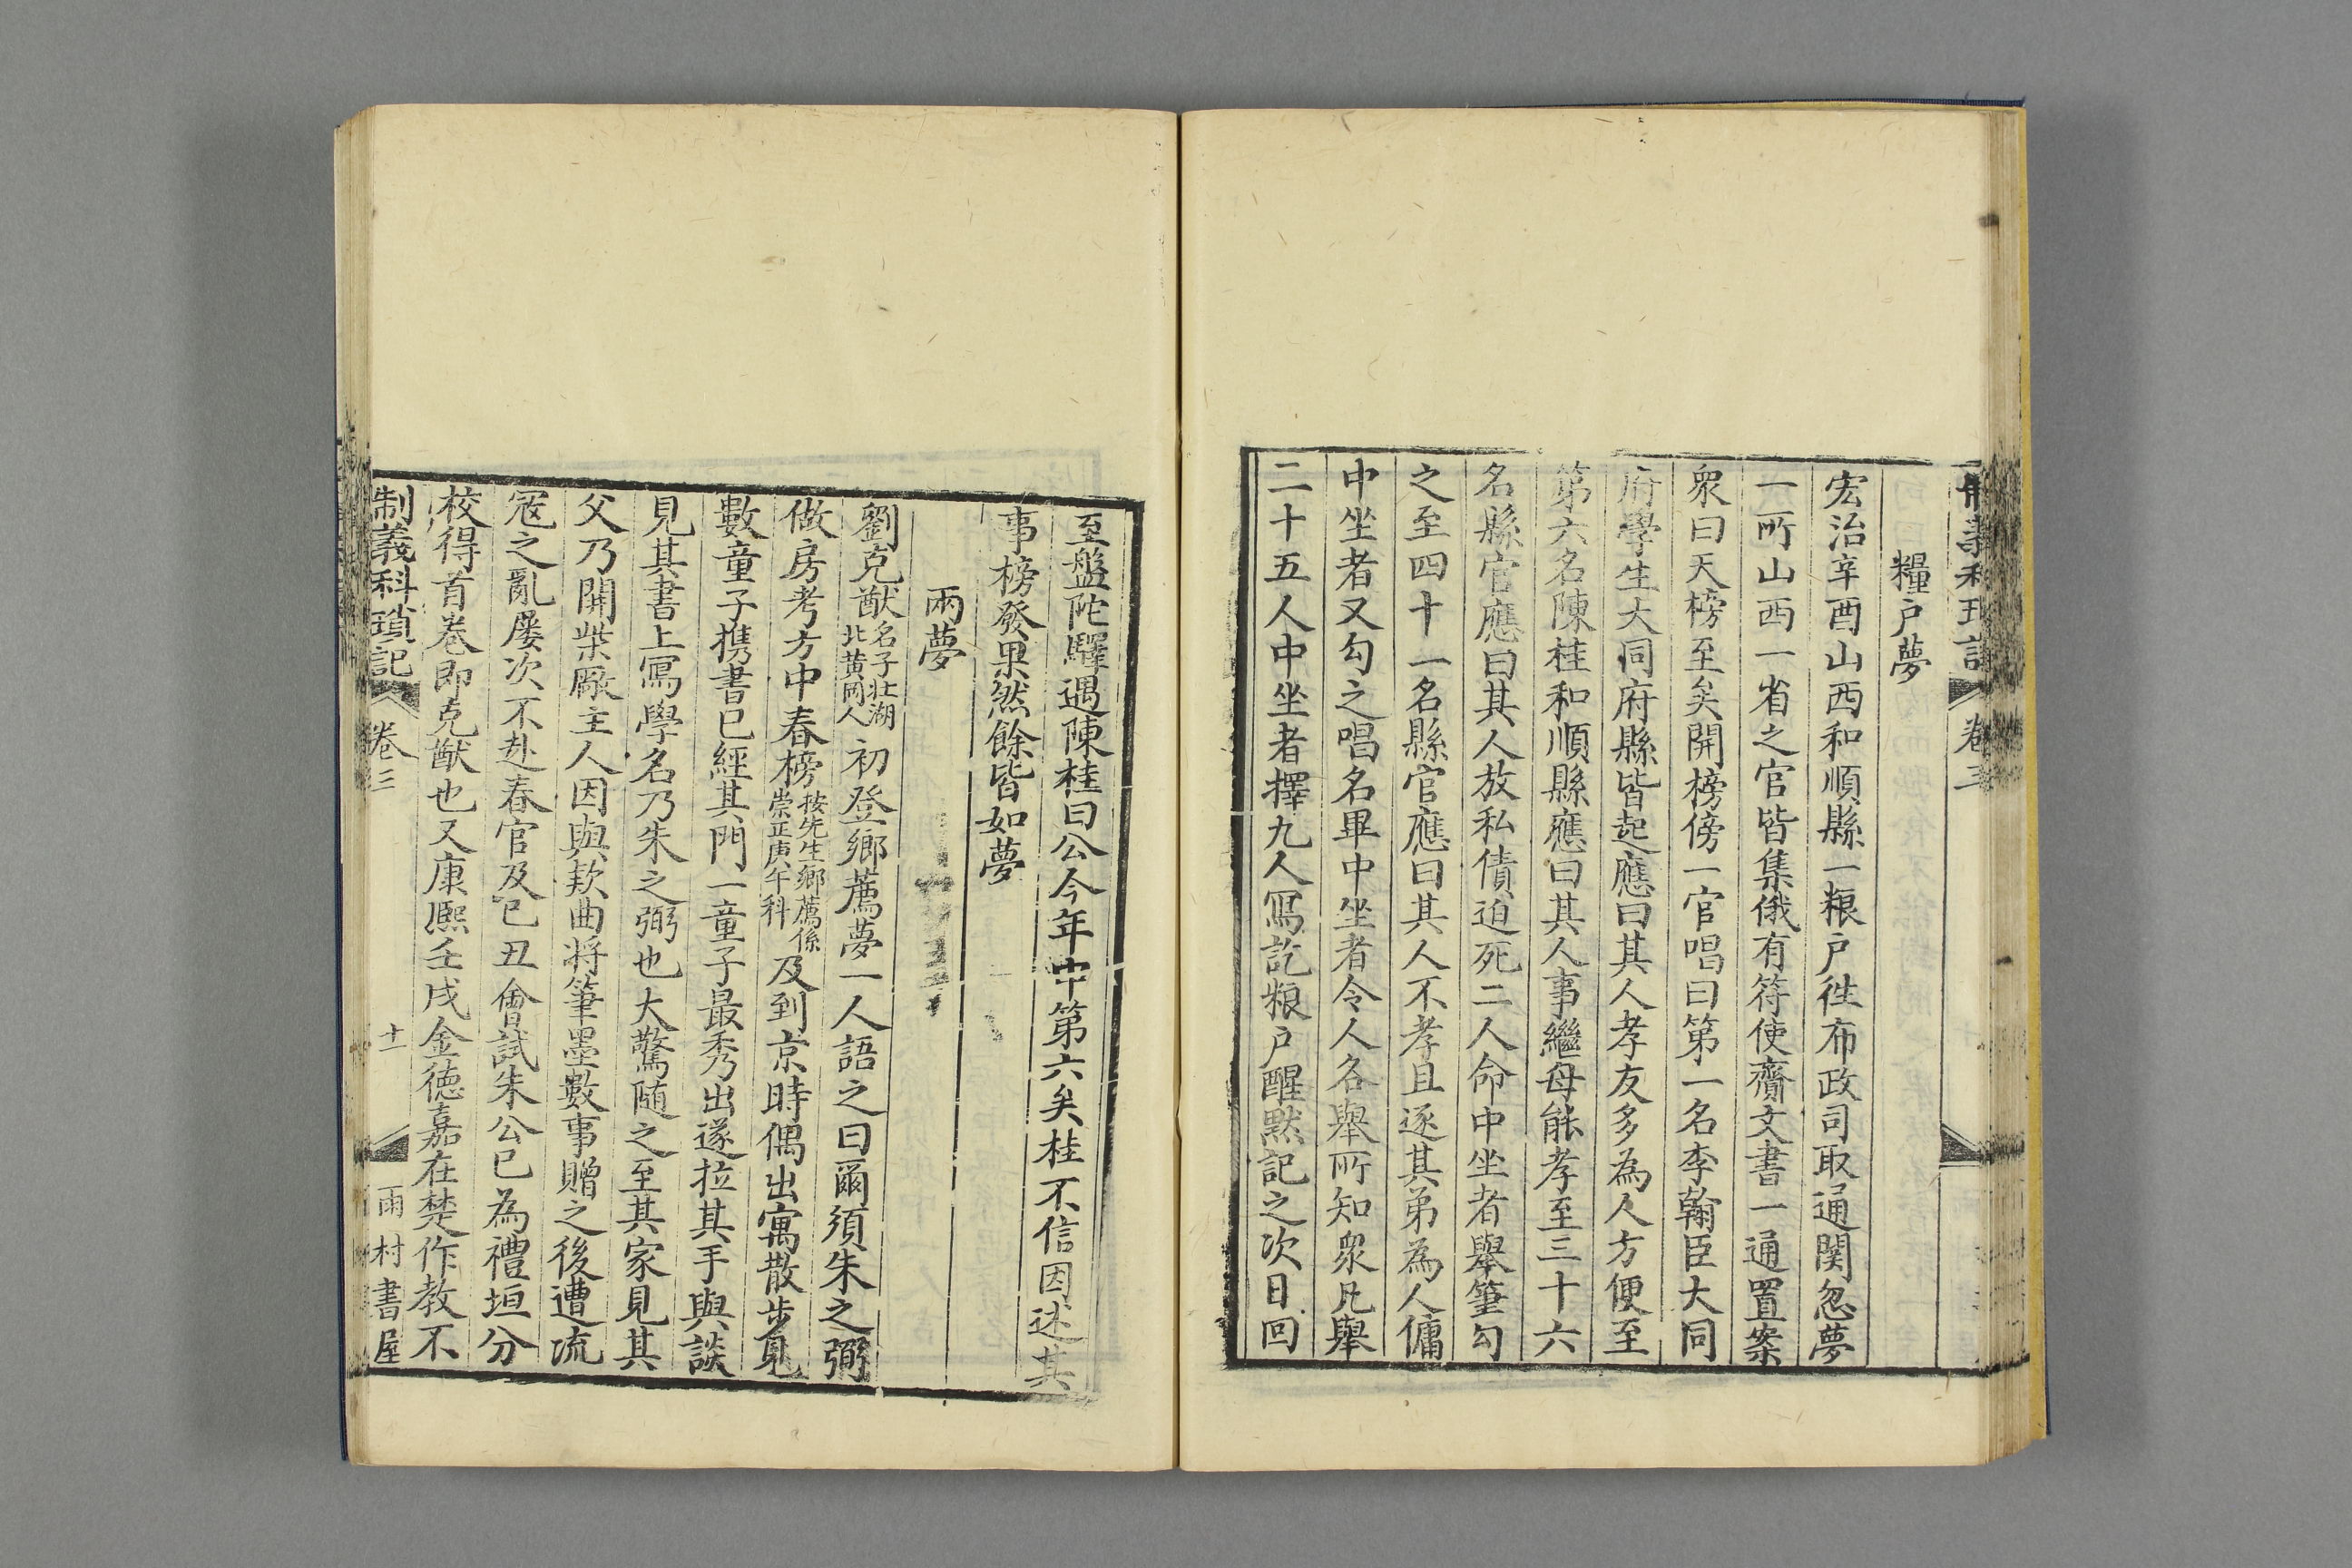 糧户夢
宏治辛酉山西和順縣一粮户徃布政司取通関忽夢
一所山西一省之官皆集俄有符使齎文書一通置案
衆曰天榜至矣開榜傍一官唱曰第一名李翰臣大同
府學生大同府縣皆起應曰其人孝友多為人方便至
第六名陳桂和順縣應曰其人事繼母能孝至三十六
名縣官應曰其人放私債迫死二人命中坐者舉筆勾
之至四十一名縣官應曰其人不孝且逐其弟為人傭
中坐者又勾之唱名畢中坐者令人各舉所知衆凡舉
二十五人中坐者擇九人寫訖粮户醒默記之次日回
至盤陀驛遇陳桂曰公今年中第六矣桂不信因述其
事榜發果然餘皆如夢
兩夢
劉克猷名子壯湖北黄岡人初登鄉薦夢一人語之曰爾須朱之弼
做房考方中春榜按先生鄉薦係崇正庚午科及到京時偶出寓散步見
數童子攜書已經其門一童子最秀出遂拉其手與談
見其書上寫學名乃朱之弼也大驚随之至其家見其
父乃開柴厰主人因與欵曲將筆墨數事贈之後遭流
寇之亂屢次不赴春官及己丑會試朱公已為禮垣分
校得首卷即克猷也又康熙壬戌金德嘉在楚作教不
制義科瑣記 卷三 十一 雨村書屋